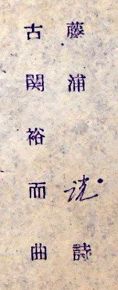 藤浦洸詩
古関裕而曲